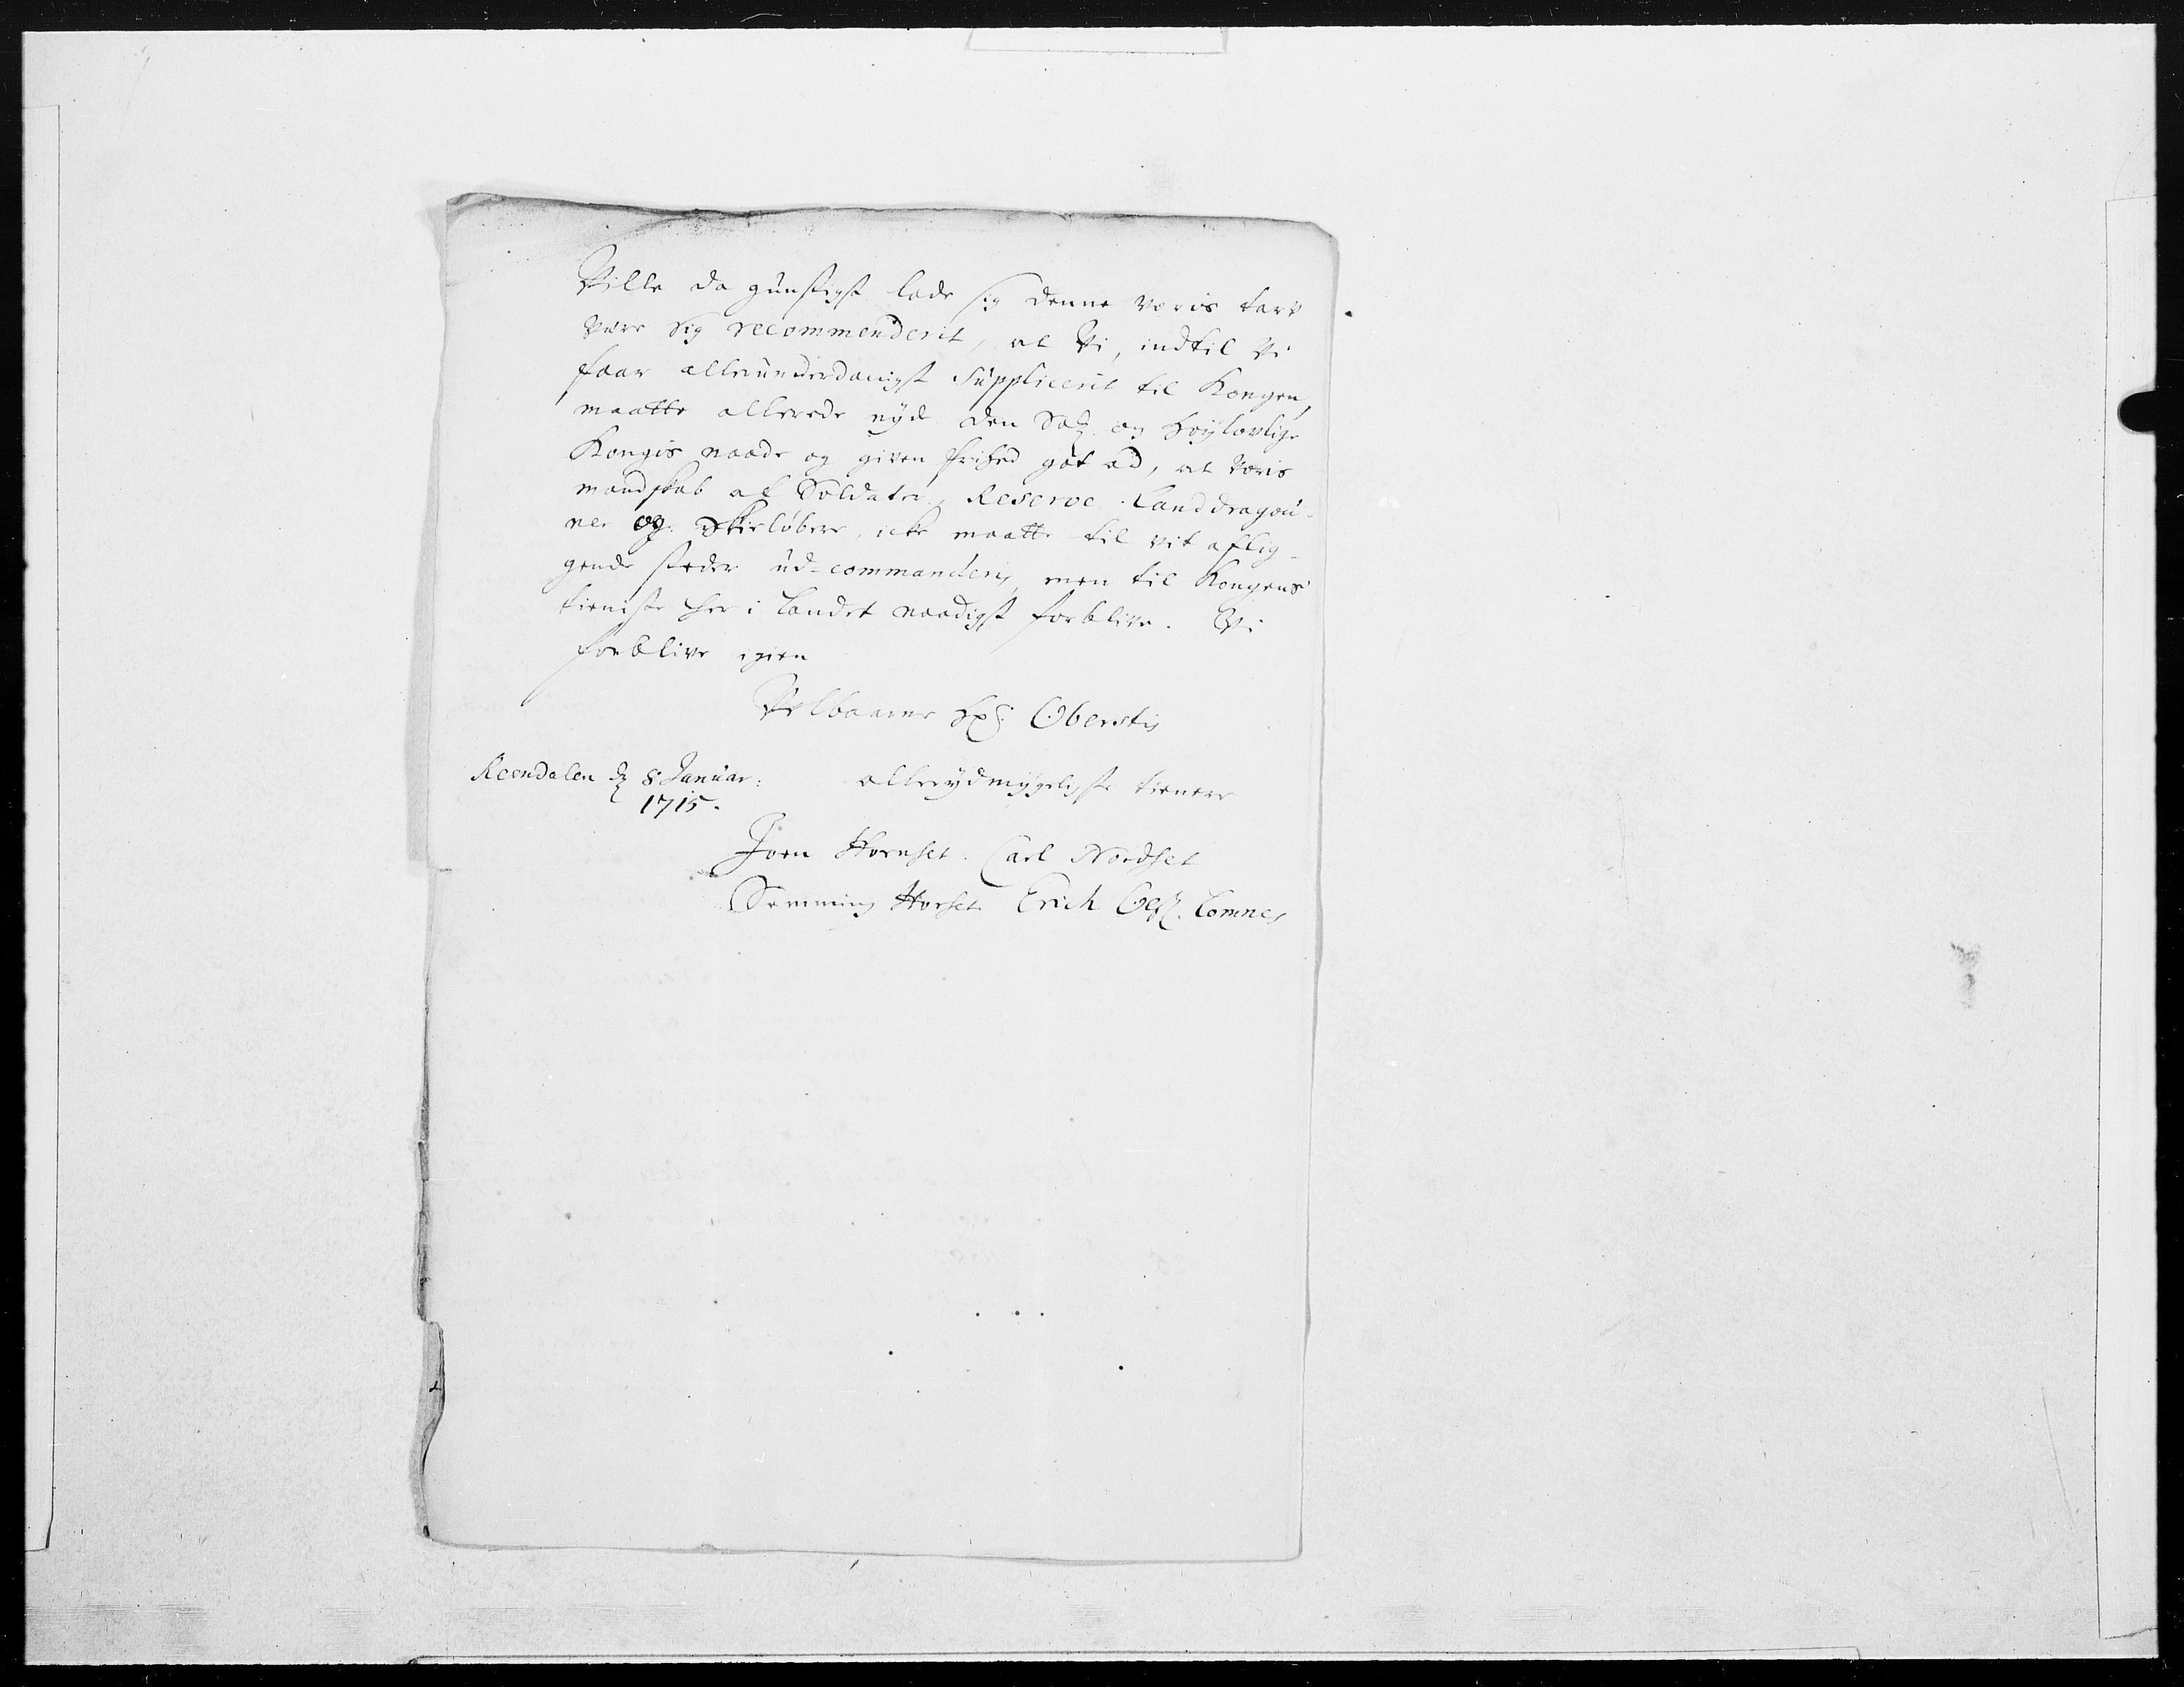 Ville da gunstigst lade sig denne voris tarv
være sig recommenderit, at Vi, indtil Vi
faar allerunderdanigst Suppliceret til Kongen,
maatte allerede nyde den Sal: og høylovlige
Kongis naade og given frihed got ad, at voris
mandskab af Soldater, Reserve Landdragou-
ner og Skieløbere, icke maatte til vit aflig-
gende steder ud-commanderis, men til Kongens
tieniste her i landet naadigst forblive. Vi
forblive igien
Velbaarne Hr: Oberstis
Reendalen d. 8 Januar: allerydmygeligste tienere
1715.
Joen Hornset. Carl Nordset
Semming Horset Erich Lomnes